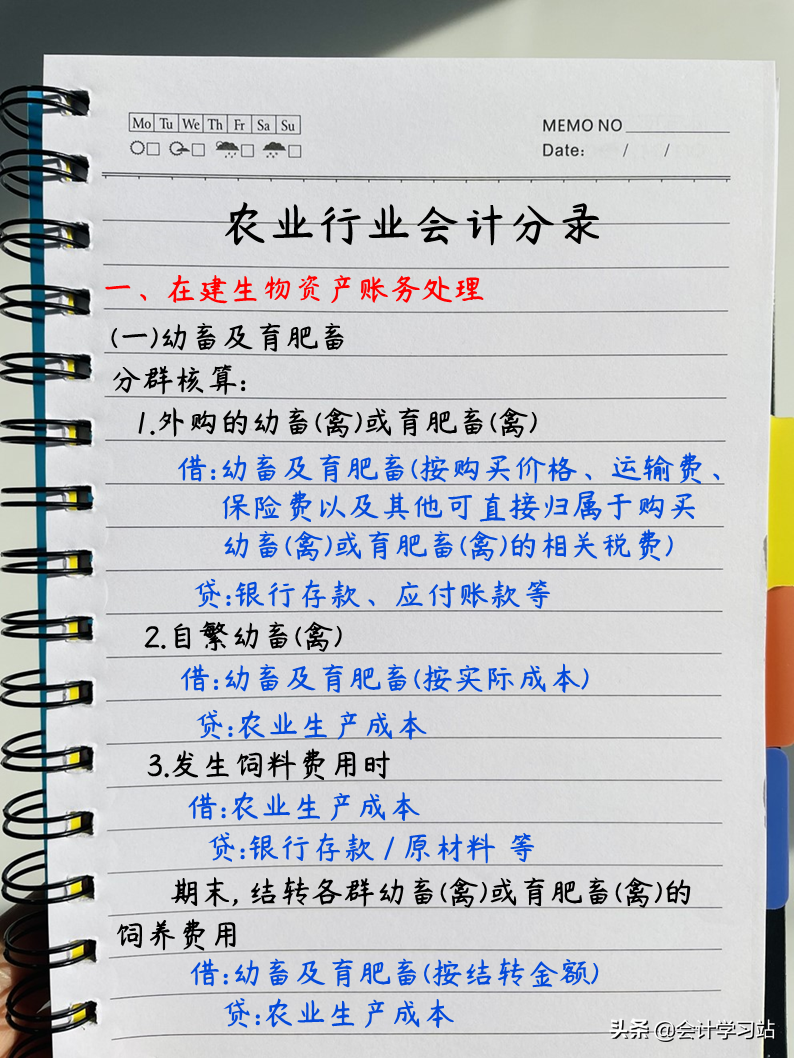 Mo Tu We Th Fr Sa Su
MEMO NO
Date: / /
农业行业会计分录
一、在建生物资产账务处理
(一)幼畜及育肥畜
分群核算:
1.外购的幼畜(禽)或育肥畜(禽)
借:幼畜及育肥畜(按购买价格、运输费、
保险费以及其他可直接归属于购买
幼畜(禽)或育肥畜(禽)的相关税费)
贷:银行存款、应付账款等
2.自繁幼畜(禽)
借:幼畜及育肥畜(按实际成本)
贷:农业生产成本
3.发生饲料费用时
借:农业生产成本
贷:银行存款/原材料 等
期末,结转各群幼畜(禽)或育肥畜(禽)的
饲养费用
借:幼畜及育肥畜(按结转金额)
贷:农业生产成本
头条 @会计学习站